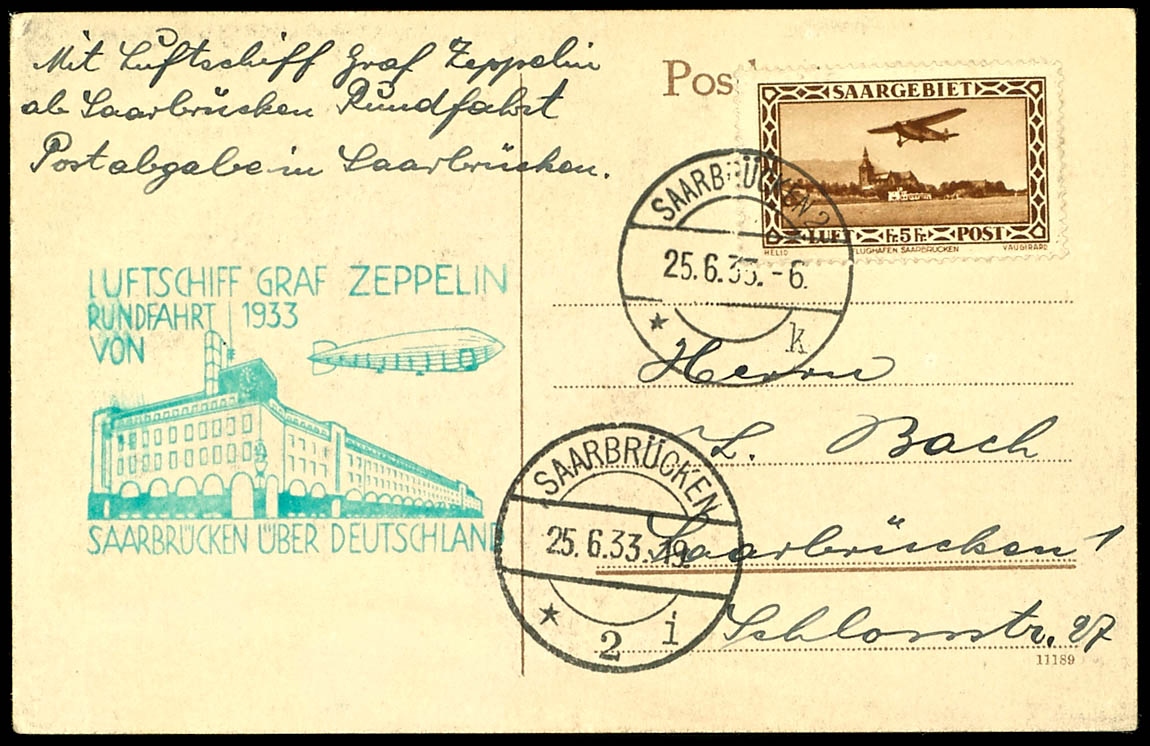 Mit Luftschiff Graf Zeppelin
ab Saarbrücken Rundfahrt
Postabgabe in Saarbrücken.
Pos
SAARGEBIET
LUFT Fr. 5 Fr. POST
HELIO FLUGHAFEN SAARBRÜCKEN VAUGIRARD
SAARBRÜCKEN 2
25.6.33.-6.
k
LUFTSCHIFF GRAF ZEPPELIN
RUNDFAHRT 1933
VON
SAARBRÜCKEN ÜBER DEUTSCHLAND
Herrn
L. Bach
Saarbrücken 1
Schlossstr. 27
SAARBRÜCKEN
25.6.33.19.
2 i
11189